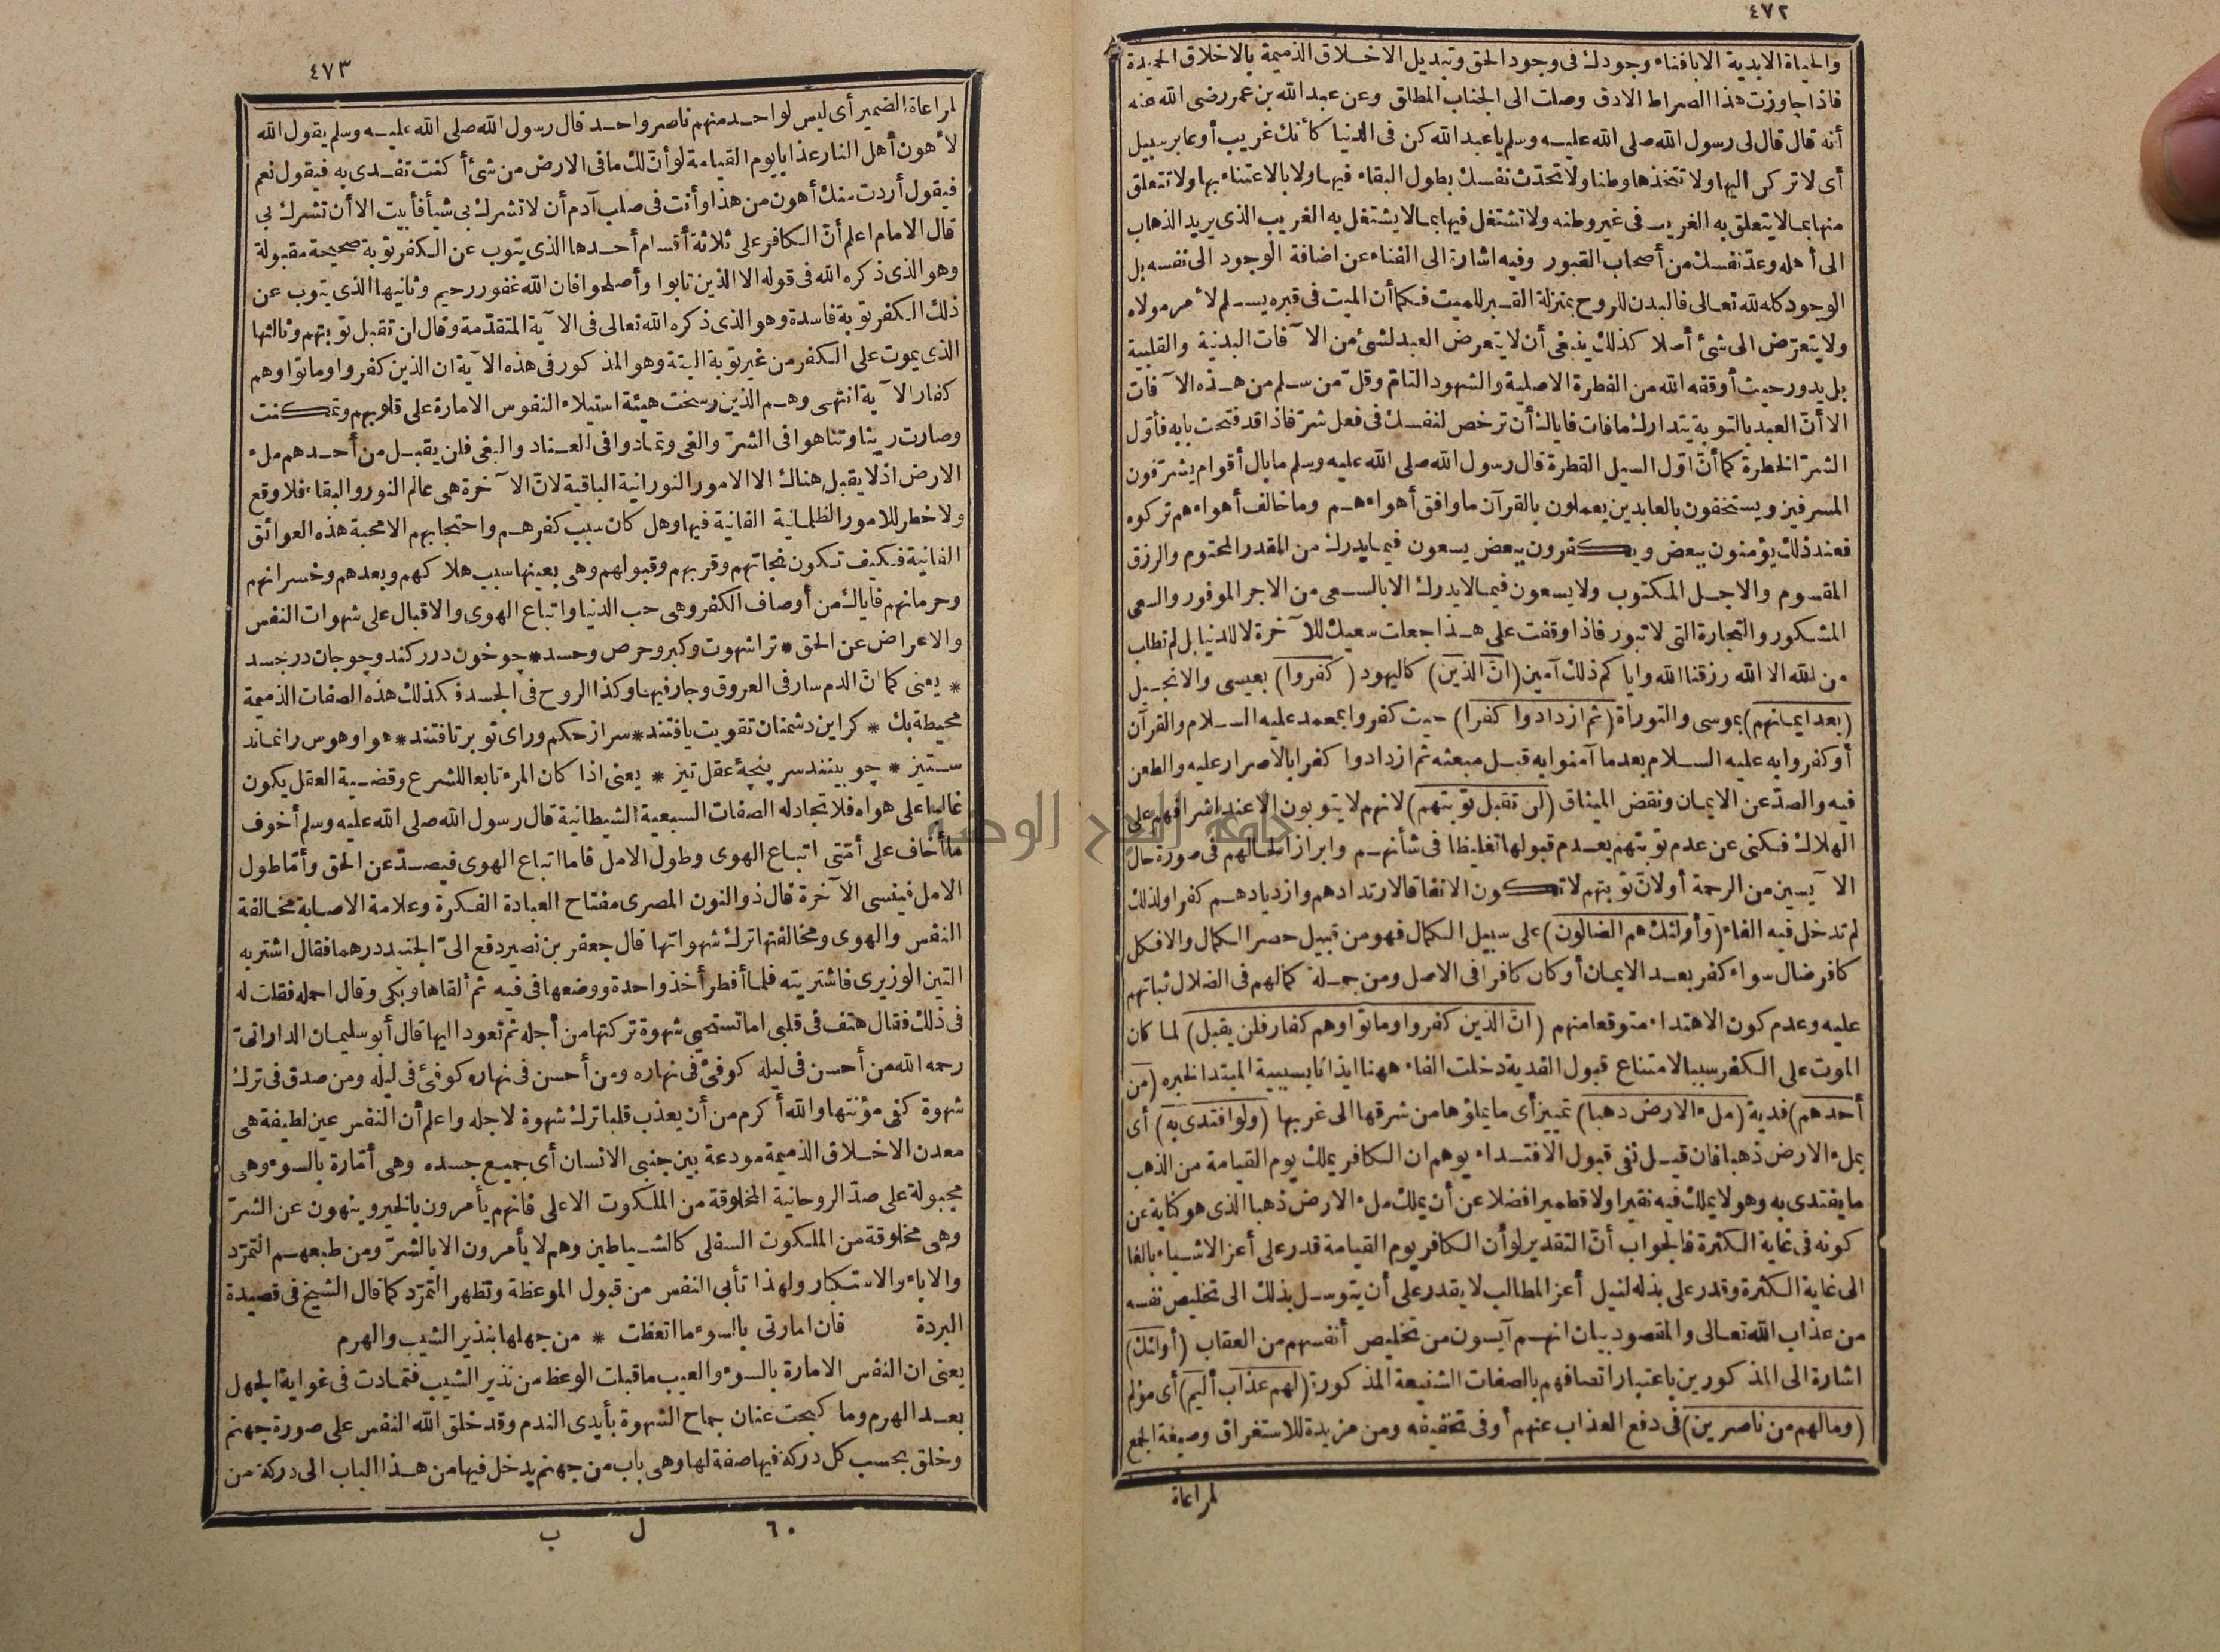 ٤٧٢
والحياة الابدية الا بافناء وجودك فى وجود الحق وتبديل الاخلاق الذميمة بالاخلاق الحميدة
فاذا جاوزت هذا الصراط الادق وصلت الى الجناب المطلق وعن عبد الله بن عمر رضى الله عنه
أنه قال قال لى رسول الله صلى الله عليه وسلم يا عبد الله كن فى الدنيا كأنك غريب أو عابر سبيل
أى لا تركن اليها ولا تتخذها وطنا ولا تحدّث نفسك بطول البقاء فيها ولا بالاعتناء بها ولا تتعلق
منها بما لا يتعلق به الغريب فى غير وطنه ولا تشتغل فيها بما لا يشتغل به الغريب الذى يريد الذهاب
الى أهله وعدّ نفسك من أصحاب القبور وفيه اشارة الى الفناء عن اضافة الوجود الى نفسه بل
الوجود كله لله تعالى فالبدن للروح بمنزلة القبر للميت فكما أن الميت فى قبره يسلم لأمر مولاه
ولا يتعرّض الى شئ أصلا كذلك ينبغى أن لا يتعرض العبد لشئ من الآفات البدنية والقلبية
بل يدور حيث أوقفه الله من الفطرة الاصلية والشهود التامّ وقلّ من سلم من هذه الآفات
الا أنّ العبد بالتوبة يتدارك ما فات فاياك أن ترخص لنفسك فى فعل شرّ فاذا قد فتحت بابه فأوّل
الشرّ الخطرة كما أنّ اوّل السيل القطرة قال رسول الله صلى الله عليه وسلم ما بال أقوام يشرّفون
المسرفين ويستخفون بالعابدين يعملون بالقرآن ما وافق أهواءهم وما خالف أهواءهم تركوه
فعند ذلك يؤمنون ببعض ويكفرون ببعض يسعون فيما يدرك من المقدر المحتوم والرزق
المقسوم والاجل المكتوب ولا يسعون فيما لا يدرك الا بالسعى من الاجر الموفور والسعى
المشكور والتجارة التى لا تبور فاذا وقفت على هذا جعلت سعيك للآخرة لا للدنيا بل لم تطلب
من الله الا الله رزقنا الله واياكم ذلك آمين (انّ الذين) كاليهود (كفروا) بعيسى والانجيل
(بعد ايمانهم) بموسى والتوراة (ثم ازدادوا كفرا) حيث كفروا بمحمد عليه السلام والقرآن
أو كفروا به عليه السلام بعدما آمنوا به قبل مبعثه ثم ازدادوا كفرا بالاصرار عليه والطعن
فيه والصدّ عن الايمان ونقض الميثاق (لن تقبل توبتهم) لانهم لا يتوبون الا عند اشرافهم على
الهلاك فكنى عن عدم توبتهم بعدم قبولها تغليظا فى شأنهم وابرازا لحالهم فى صورة حال
الآيسين من الرحمة أو لانّ توبتهم لا تكون الا نفاقا لارتدادهم وازديادهم كفرا ولذلك
لم تدخل فيه الفاء (وأولئك هم الضالون) على سبيل الكمال فهو من قبيل حصر الكمال والا فكل
كافر ضال سواء كفر بعد الايمان أو كان كافرا فى الاصل ومن جملة كمالهم فى الضلال ثباتهم
عليه وعدم كون الاهتداء متوقعا منهم (انّ الذين كفروا وماتوا وهم كفار فلن يقبل) لما كان
الموت على الكفر سببا لامتناع قبول الفدية دخلت الفاء ههنا ايذانا بسببية المبتدا لخبره (من
أحدهم) فدية (ملء الارض ذهبا) تمييز أى ما يملؤها من شرقها الى غربها (ولو افتدى به) أى
بملء الارض ذهبا فان قيل نفى قبول الافتداء يوهم ان الكافر يملك يوم القيامة من الذهب
ما يفتدى به وهو لا يملك فيه نقيرا ولا قطميرا فضلا عن أن يملك ملء الارض ذهبا الذى هو كناية عن
كونه فى غاية الكثرة فالجواب أنّ التقدير لو أن الكافر يوم القيامة قدر على أعز الاشياء بالغا
الى غاية الكثرة وقدر على بذله لنيل أعز المطالب لا يقدر على أن يتوسل بذلك الى تخليص نفسه
من عذاب الله تعالى والمقصود بيان انهم آيسون من تخليص أنفسهم من العقاب (أولئك)
اشارة الى المذكورين باعتبار اتصافهم بالصفات الشنيعة المذكورة (لهم عذاب أليم) أى مؤلم
(وما لهم من ناصرين) فى دفع العذاب عنهم أو فى تخفيفه ومن مزيدة للاستغراق وصيغة الجمع
لمراعاة
٤٧٣
لمراعاة الضمير أى ليس لواحد منهم ناصر واحد قال رسول الله صلى الله عليه وسلم يقول الله
لأهون أهل النار عذابا يوم القيامة لو أنّ لك ما فى الارض من شئ أكنت تفتدى به فيقول نعم
فيقول أردت منك أهون من هذا وأنت فى صلب آدم أن لا تشرك بى شيأ فأبيت الا أن تشرك بى
قال الامام اعلم أنّ الكافر على ثلاثة أقسام أحدها الذى يتوب عن الكفر توبة صحيحة مقبولة
وهو الذى ذكره الله فى قوله الا الذين تابوا وأصلحوا فان الله غفور رحيم وثانيها الذى يتوب عن
ذلك الكفر توبة فاسدة وهو الذى ذكره الله تعالى فى الآية المتقدّمة وقال لن تقبل توبتهم وثالثها
الذى يموت على الكفر من غير توبة البتة وهو المذكور فى هذه الآية ان الذين كفروا وماتوا وهم
كفار الآية انتهى وهم الذين رسخت هيئة استيلاء النفوس الامارة على قلوبهم وتمكنت
وصارت رينا وتناهوا فى الشرّ والغى وتمادوا فى العناد والبغى فلن يقبل من أحدهم ملء
الارض اذ لا يقبل هناك الا الامور النورانية الباقية لانّ الآخرة هى عالم النور والبقاء فلا وقع
ولا خطر للامور الظلمانية الفانية فيها وهل كان سبب كفرهم واحتجابهم الا محبة هذه العوائق
الفانية فكيف تكون نجاتهم وقربهم وقبولهم وهى بعينها سبب هلاكهم وبعدهم وخسرانهم
وحرمانهم فاياك من أوصاف الكفر وهى حب الدنيا واتباع الهوى والاقبال على شهوات النفس
والاعراض عن الحق * ترا شهوت وكبر وحرص وحسد * چو خون در ركند وچو جان در جسد
* يعنى كما انّ الدم سار فى العروق وجار فيها وكذا الروح فى الجسد فكذلك هذه الصفات الذميمة
محيطة بك * كر اين دشمنان تقويت يافتند * سر از حكم وراى تو بر تافتند * هوا وهوس را نماند
ستيز * چو بينند سر پنجهٔ عقل تيز * يعنى اذا كان المرء تابعا للشرع وقضية العقل يكون
غالبا على هواه فلا تجادله الصفات السبعية الشيطانية قال رسول الله صلى الله عليه وسلم أخوف
ما أخاف على أمّتى اتباع الهوى وطول الامل فاما اتباع الهوى فيصدّ عن الحق وأمّا طول
الامل فينسى الآخرة قال ذو النون المصرى مفتاح العبادة الفكرة وعلامة الاصابة مخالفة
النفس والهوى ومخالفتها ترك شهواتها قال جعفر بن نصير دفع الىّ الجنيد درهما فقال اشتر به
التين الوزيرى فاشتريته فلما أفطر أخذ واحدة ووضعها فى فيه ثم ألقاها وبكى وقال احمله فقلت له
فى ذلك فقال هتف فى قلبى اما تستحيى شهوة تركتها من أجله ثم تعود اليها قال أبو سليمان الدارانىّ
رحمه الله من أحسن فى ليله كوفئ فى نهاره ومن أحسن فى نهاره كوفئ فى ليله ومن صدق فى ترك
شهوة كفى مؤنتها والله أكرم من أن يعذب قلبا ترك شهوة لاجله واعلم أن النفس عين لطيفة هى
معدن الاخلاق الذميمة مودعة بين جنبى الانسان أى جميع جسده وهى أمّارة بالسوء وهى
مجبولة على ضدّ الروحانية المخلوقة من الملكوت الاعلى فانهم يأمرون بالخير وينهون عن الشرّ
وهى مخلوقة من الملكوت السفلى كالشياطين وهم لا يأمرون الا بالشرّ ومن طبعهم التمرّد
والاباء والاستكبار ولهذا تأبى النفس من قبول الموعظة وتظهر التمرّد كما قال الشيخ فى قصيدة
البردة فان امارتى بالسوء ما اتعظت * من جهلها بنذير الشيب والهرم
يعنى ان النفس الامارة بالسوء والعيب ما قبلت الوعظ من نذير الشيب فتمادت فى غواية الجهل
بعد الهرم وما كبحت عنان جماح الشهوة بأيدى الندم وقد خلق الله النفس على صورة جهنم
وخلق بحسب كل دركة فيها صفة لها وهى باب من جهنم يدخل فيها من هذا الباب الى دركة من
٦٠ ل ب